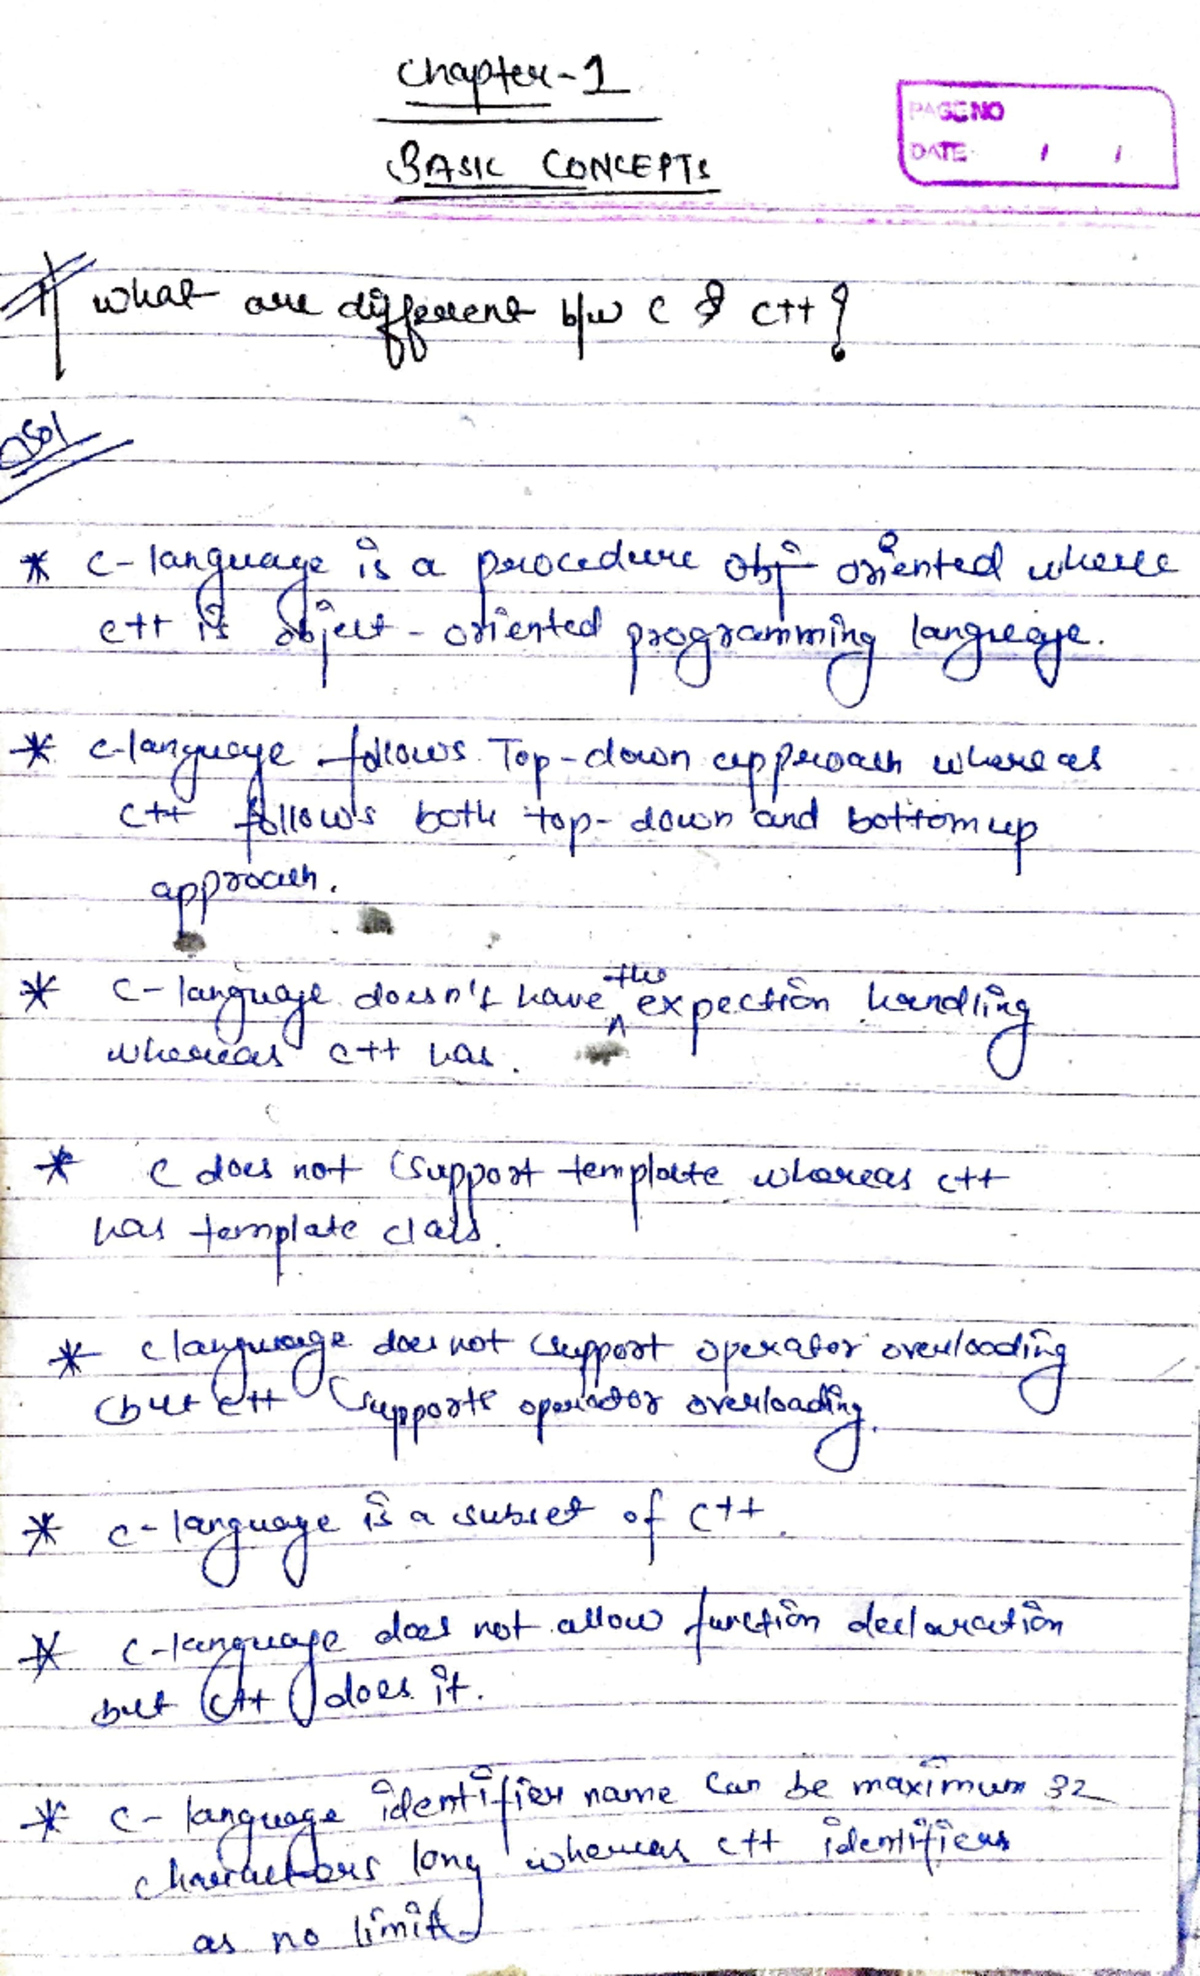 Chapter-1
BASIC CONCEPTS
PAGE NO
DATE / /
# what are different b/w C & C++?
Sol
* C-language is a procedure obj oriented where
C++ is object-oriented programming language.
* C-language follows Top-down approach whereas
C++ follows both top-down and bottom up
approach.
* C-language doesn't have the expection handling
whereas C++ has.
* C does not support template whereas C++
has template class.
* C language does not support operator overloading
but C++ supports operator overloading.
* C-language is a subset of C++.
* C-language does not allow function declaration
but C++ does it.
* C-language identifier name can be maximum 32
characters long whereas C++ identifiers
as no limit